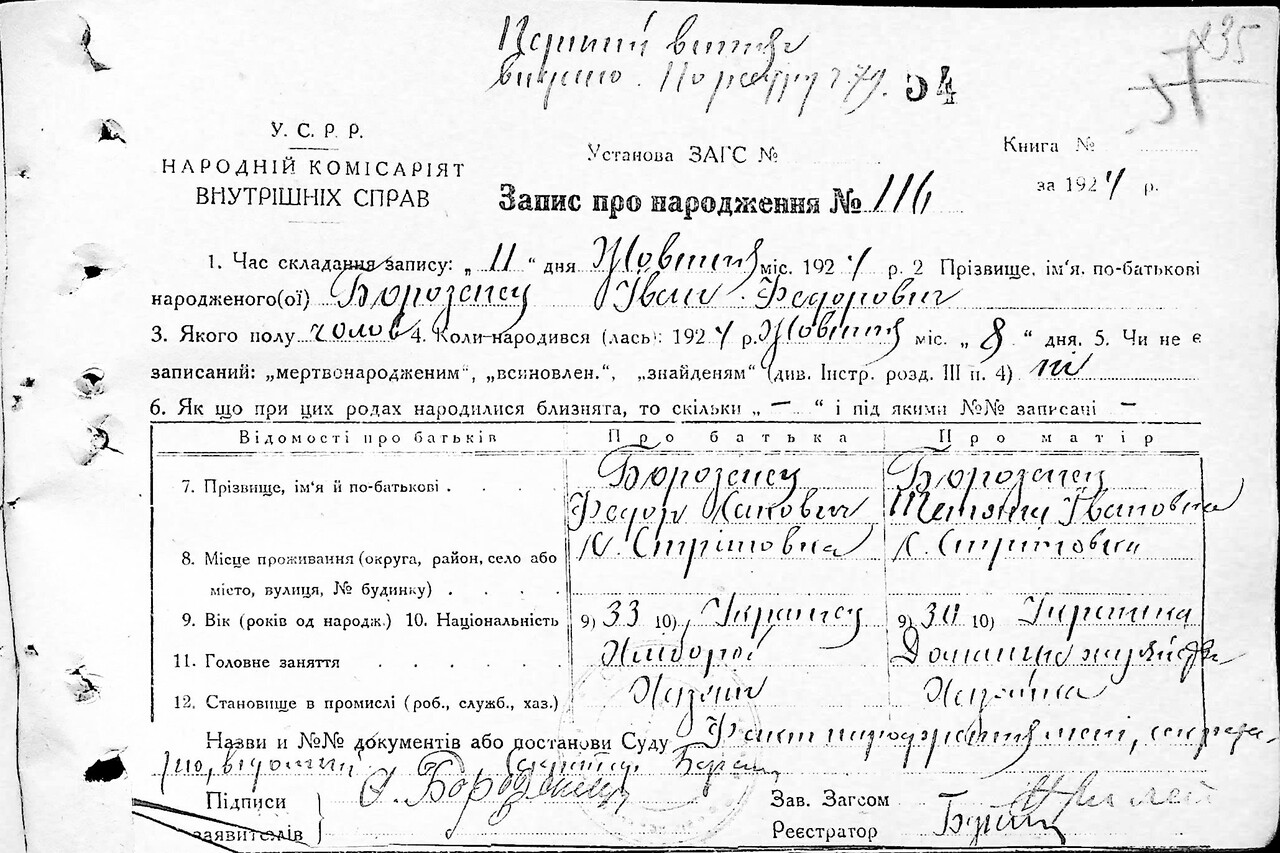 Перший витяг
видано. По реєстру 279. 54
У. С. Р. Р.
НАРОДНІЙ КОМІСАРІЯТ
ВНУТРІШНІХ СПРАВ
Установа ЗАГС №
Книга №
за 1924 р.
Запис про народження № 116
1. Час складання запису: „ 11 “ дня Жовтня міс. 1924 р. 2 Прізвище, ім‘я, по-батькові
народженого(ої) Борозенец Іван Федорович
3. Якого полу чолов 4. Коли народився (лась): 1924 р. Жовтня міс. „ 8 “ дня. 5. Чи не є
записаний: „мертвонародженим“, „всиновлен.“, „знайденям“ (див. Інстр. розд. III п. 4) ні
6. Як що при цих родах народилися близнята, то скільки „ — “ і під якими №№ записані —
Відомості про батьків Про батька Про матір
7. Прізвище, ім‘я й по-батькові Борозенец Борозенец
Федор Іванович Тетяна Івановна
8. Місце проживання (округа, район, село або С. Стрітовка С. Стрітовка
місто, вулиця, № будинку)
9. Вік (років од народж.) 10. Національність 9) 33 10) Українец 9) 30 10) Українка
11. Головне заняття Хлібороб Домашнє
12. Становище в промислі (роб., служб., хаз.) Хазяін Хазяйка
Назви и №№ документів або постанови Суду Факт народження мені, секрета-
рю, відомий
Підписи
заявителів
Зав. Загсом
Реєстратор